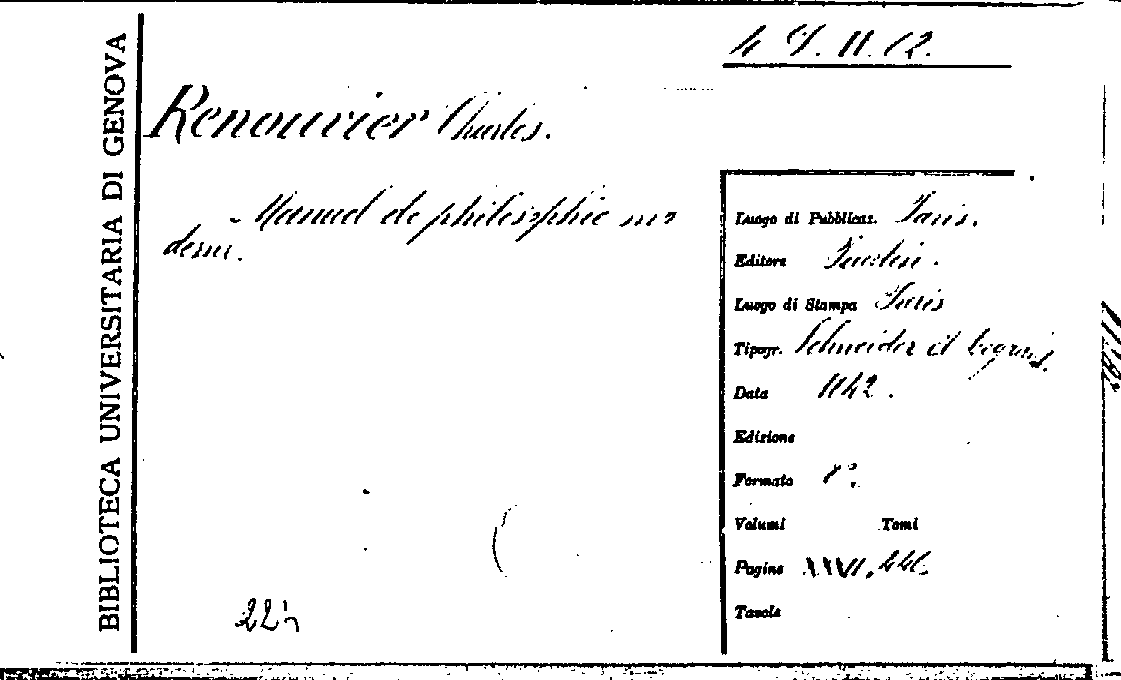 BIBLIOTECA UNIVERSITARIA DI GENOVA
Renouvier Charles.
- Manuel de philosophie mo
derne.
Luogo di Pubblicaz. Paris.
Editore Paulin.
Luogo di Stampa Paris
Tipogr. Schneider et Legrand.
Data 1842.
Edizione
Formato 8°.
Volumi Tomi
Pagine XXVII,
Tavole